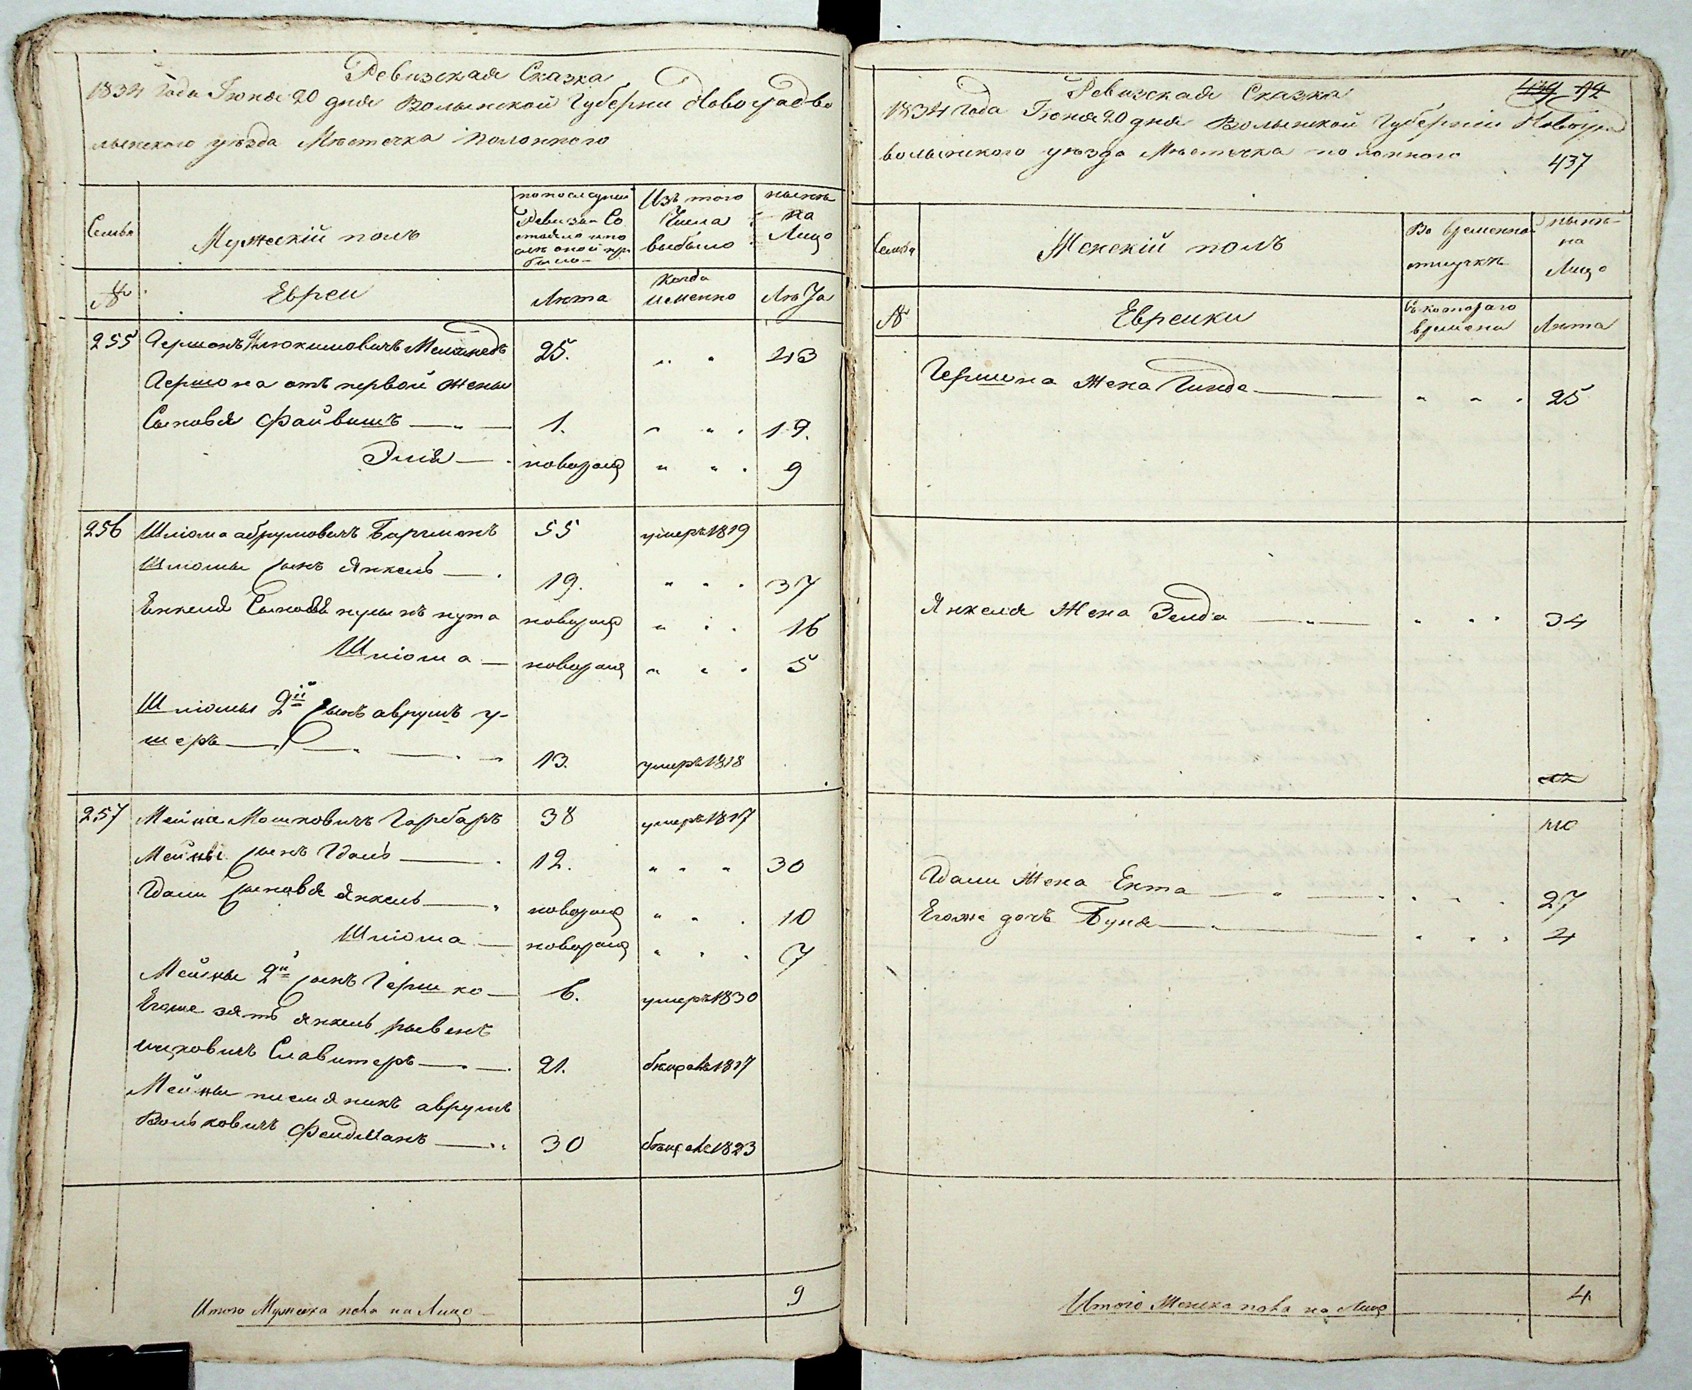 Ревизская Сказка
1834 года Іюня 20 дня Волынской Губерніи Новоградво
лынского уезда Местечка Полонного
Семьи
Мужескій полъ
по последней
Ревизіи Со
стояло и по
сле оной при
было
Изъ того
Числа
выбыло
ныне
на
Лицо
№
Евреи
Лѣта
Когда
именно
Лѣта
255 Гершонъ 25. „ „ 43
Гершона отъ первой жены
Сыновья Файвишъ 1. „ „ 19.
Элія новорож „ „ 9
256 Шліома Абрумовичъ 55 умеръ 1819
Шліомы сынъ Янкель 19. „ „ 37
Янкеля Сыновья нута новорож „ „ 16
Шліома новорож „ „ 5
Шліомы 2й сынъ аврумъ у-
меръ 13. умеръ 1818
257 Мейна Мошковичъ Гарбаръ 38 умеръ 1817
Мейны сынъ Гдаль 12. „ „ 30
Гдали Сыновья Янкель новорож „ „ 10
Шліома новорож „ „ 7
Мейны 2й сынъ Гершко 6. умеръ 1830
Егоже зять Янкель рывенъ
ицковичъ Славитеръ 21. 1817
Мейны племяникъ аврумъ
Вольковичъ Фельдманъ 30 1823
Итого Мужеска пола на Лицо 9
Ревизская Сказка
439
1834 года Іюня 20 дня Волынской Губерніи Новоград
волынского уезда Местечка полонного 437
Семьи
Женскій полъ
Во временной
отлучке
ныне
на
Лицо
№
Еврейки
Съ котораго
времени
Лѣта
Гершона Жена Гинда „ „ 25
Янкеля Жена Зелда „ „ 34
Гдали Жена Ента „ „ 27
Егоже дочь Буня „ „ 4
Итого Женска пола на Лицо 4